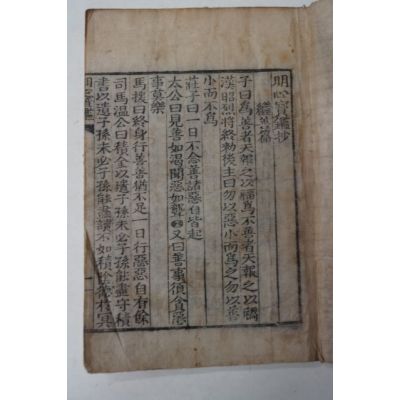 明心寶鑑抄
繼善篇
子曰爲善者天報之以福爲不善者天報之以禍
漢昭烈將終勑後主曰勿以惡小而爲之勿以善
小而不爲
莊子曰一日不念善諸惡自皆起
太公曰見善如渴聞惡如聾又曰善事須貪惡
事莫樂
馬援曰終身行善善猶不足一日行惡惡自有餘
司馬溫公曰積金以遺子孫未必子孫能盡守積
書以遺子孫未必子孫能盡讀不如積陰德於冥